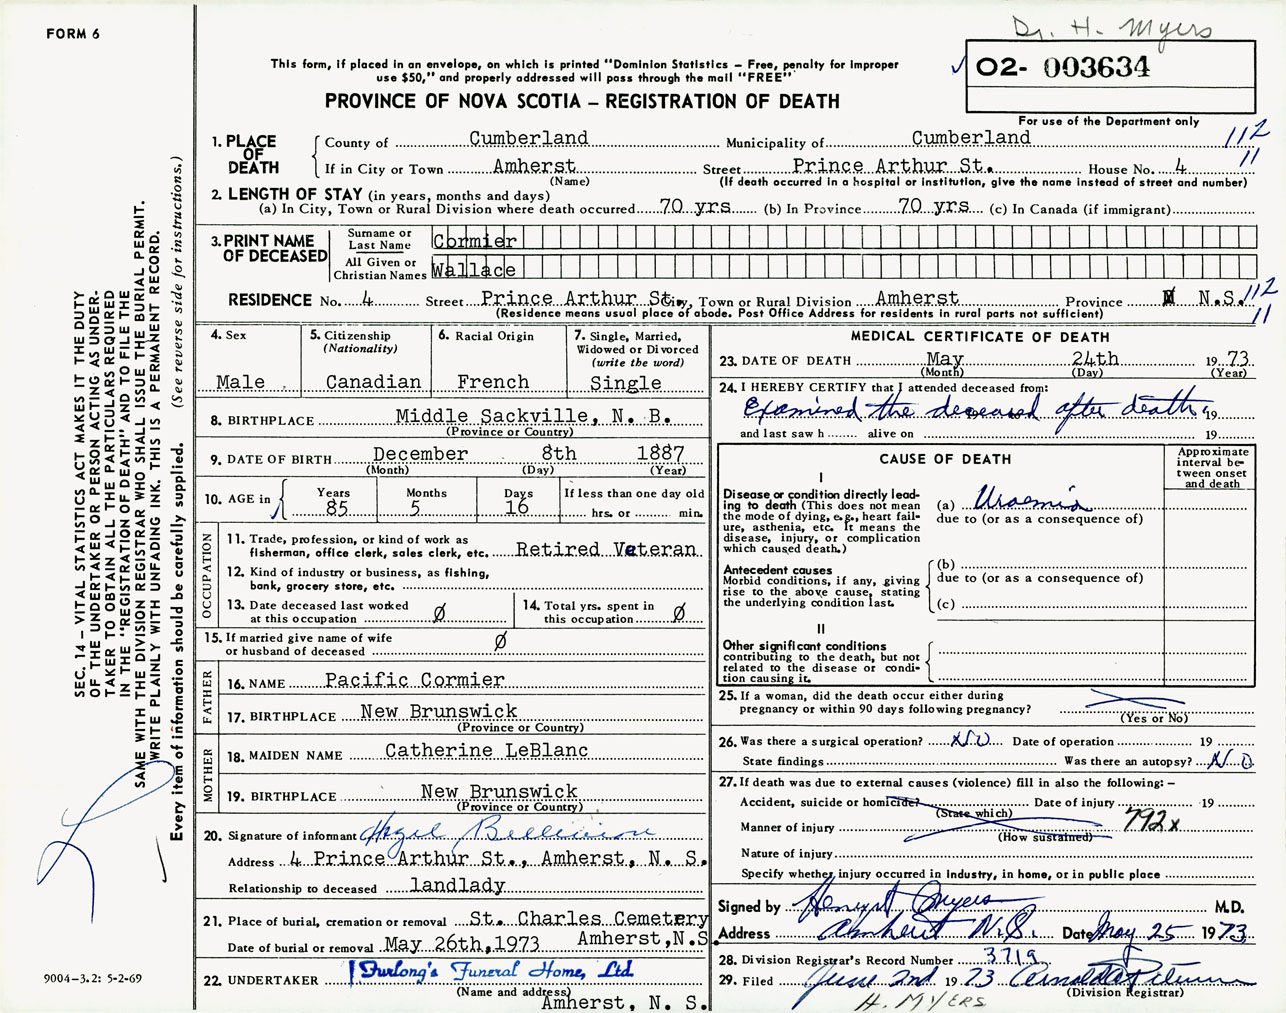 FORM 6
Dr. H. Myers
This form, if placed in an envelope, on which is printed "Dominion Statistics – Free, penalty for improper
use $50," and properly addressed will pass through the mail "FREE"
O2- 003634
PROVINCE OF NOVA SCOTIA – REGISTRATION OF DEATH
For use of the Department only
1. PLACE OF DEATH
County of Cumberland Municipality of Cumberland 112
If in City or Town Amherst Street Prince Arthur St. House No. 4 11
(Name) (If death occurred in a hospital or institution, give the name instead of street and number)
2. LENGTH OF STAY (in years, months and days)
(a) In City, Town or Rural Division where death occurred 70 yrs (b) In Province 70 yrs (c) In Canada (if immigrant)
3. PRINT NAME OF DECEASED
Surname or Last Name Cormier
All Given or Christian Names Wallace
RESIDENCE No. 4 Street Prince Arthur St. City, Town or Rural Division Amherst Province N.S. 112
(Residence means usual place of abode. Post Office Address for residents in rural parts not sufficient) 11
4. Sex
Male
5. Citizenship
(Nationality)
Canadian
6. Racial Origin
French
7. Single, Married,
Widowed or Divorced
(write the word)
Single
8. BIRTHPLACE Middle Sackville, N. B.
(Province or Country)
9. DATE OF BIRTH December 8th 1887
(Month) (Day) (Year)
10. AGE in
Years Months Days If less than one day old
85 5 16 hrs. or min.
OCCUPATION
11. Trade, profession, or kind of work as
fisherman, office clerk, sales clerk, etc. Retired Veteran
12. Kind of industry or business, as fishing,
bank, grocery store, etc.
13. Date deceased last worked
at this occupation Ø
14. Total yrs. spent in
this occupation Ø
15. If married give name of wife
or husband of deceased Ø
FATHER
16. NAME Pacific Cormier
17. BIRTHPLACE New Brunswick
(Province or Country)
MOTHER
18. MAIDEN NAME Catherine LeBlanc
19. BIRTHPLACE New Brunswick
(Province or Country)
20. Signature of informant
Address 4 Prince Arthur St., Amherst, N. S.
Relationship to deceased landlady
21. Place of burial, cremation or removal St. Charles Cemetery
Date of burial or removal May 26th,1973 Amherst,N.S.
22. UNDERTAKER Furlong's Funeral Home, Ltd.
(Name and address)
Amherst, N. S.
MEDICAL CERTIFICATE OF DEATH
23. DATE OF DEATH May 24th 1973
(Month) (Day) (Year)
24. I HEREBY CERTIFY that I attended deceased from:
Examined the deceased after death 19
and last saw h alive on 19
CAUSE OF DEATH
Approximate
interval be-
tween onset
and death
I
Disease or condition directly lead-
ing to death (This does not mean
the mode of dying, e.g., heart fail-
ure, asthenia, etc. It means the
disease, injury, or complication
which caused death.)
(a) Uraemia
due to (or as a consequence of)
Antecedent causes
Morbid conditions, if any, giving
rise to the above cause, stating
the underlying condition last.
(b)
due to (or as a consequence of)
(c)
II
Other significant conditions
contributing to the death, but not
related to the disease or condi-
tion causing it.
25. If a woman, did the death occur either during
pregnancy or within 90 days following pregnancy?
(Yes or No)
26. Was there a surgical operation? NO Date of operation 19
State findings Was there an autopsy? NO
27. If death was due to external causes (violence) fill in also the following: –
Accident, suicide or homicide? Date of injury 19
(State which)
Manner of injury 792x
(How sustained)
Nature of injury
Specify whether injury occurred in industry, in home, or in public place
Signed by Henry Myers M.D.
Address Amherst N.S. Date May 25 1973
28. Division Registrar's Record Number 3719
29. Filed June 2nd 1973
(Division Registrar)
H. MYERS
SEC. 14 – VITAL STATISTICS ACT MAKES IT THE DUTY
OF THE UNDERTAKER OR PERSON ACTING AS UNDER-
TAKER TO OBTAIN ALL THE PARTICULARS REQUIRED
IN THE "REGISTRATION OF DEATH" AND TO FILE THE
SAME WITH THE DIVISION REGISTRAR WHO SHALL ISSUE THE BURIAL PERMIT.
WRITE PLAINLY WITH UNFADING INK. THIS IS A PERMANENT RECORD.
Every item of information should be carefully supplied. (See reverse side for instructions.)
9004–3.2: 5-2-69